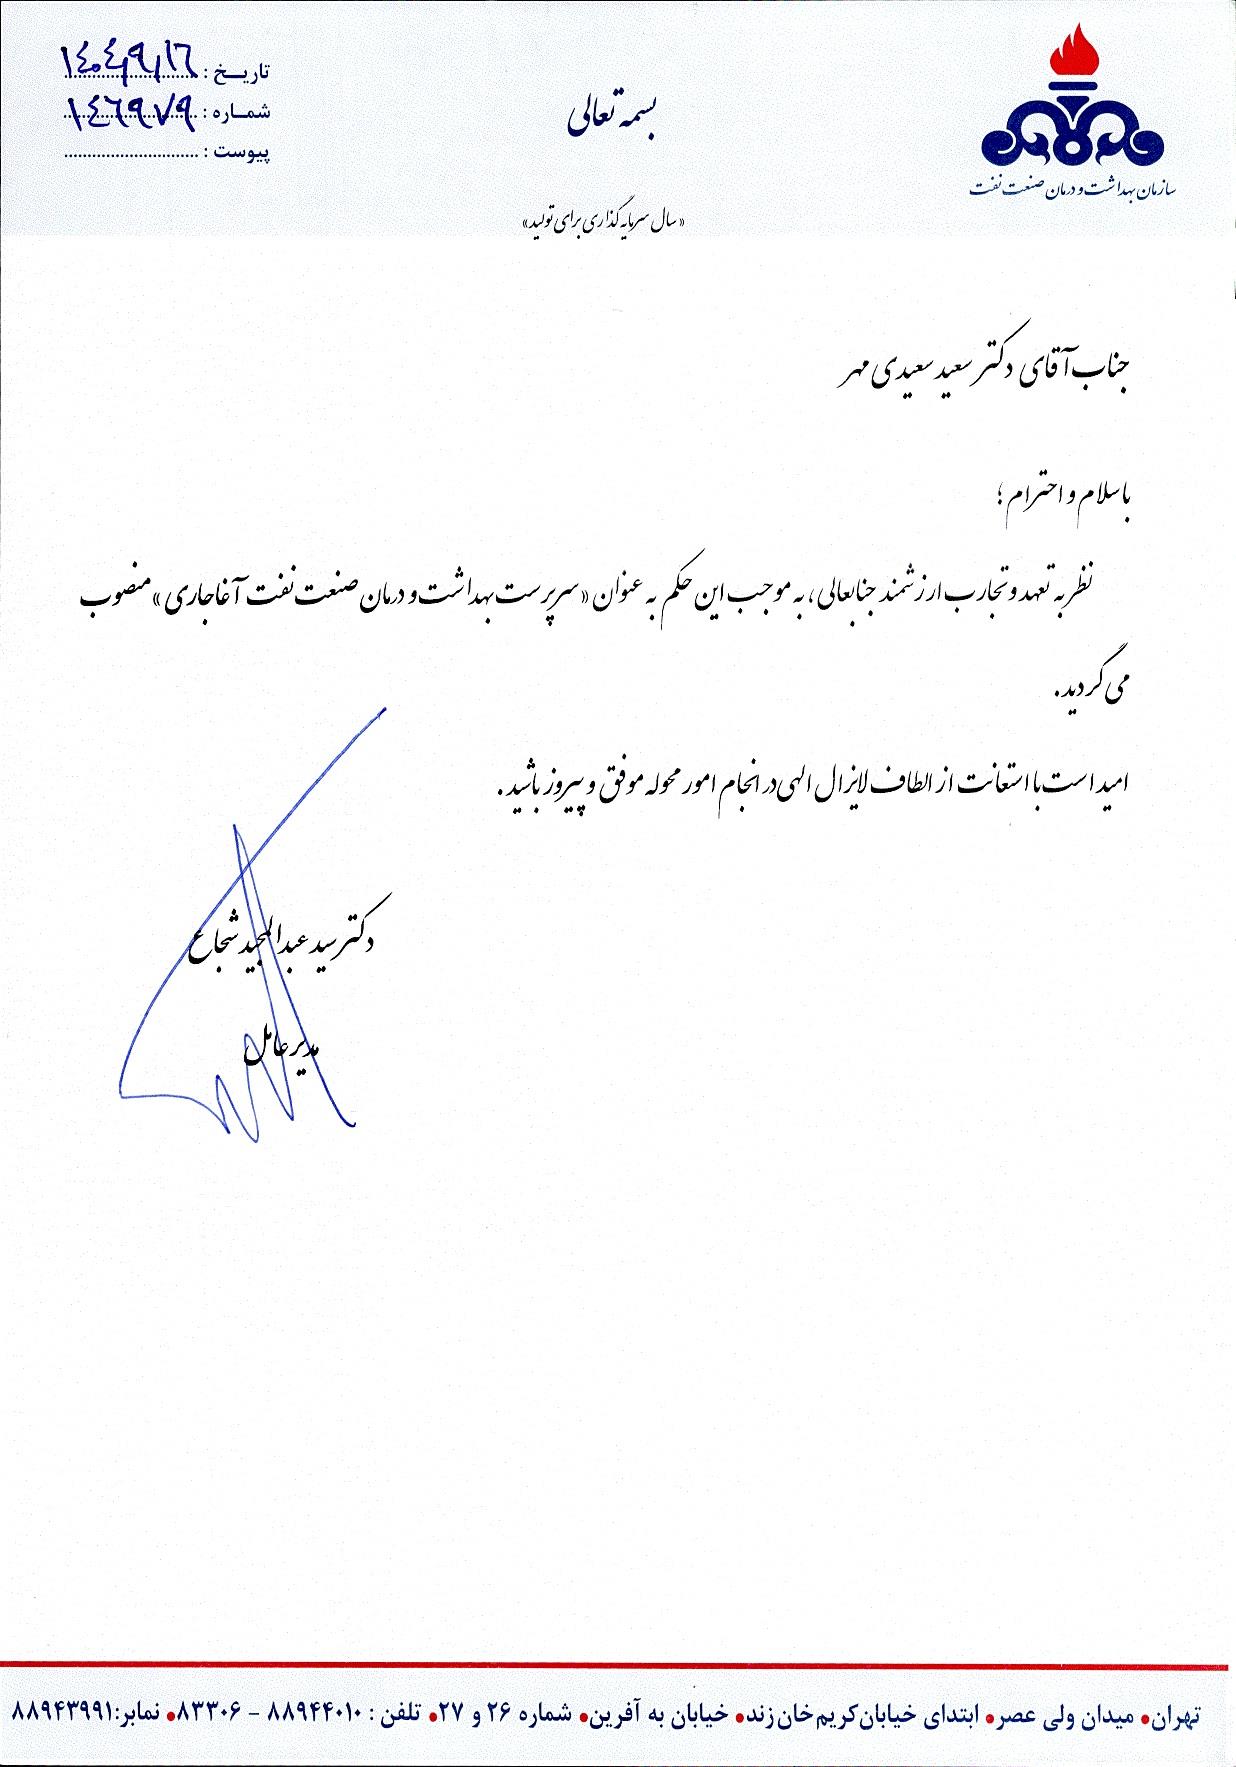 سازمان بهداشت و درمان صنعت نفت
بسمه تعالی
«سال سرمایه گذاری برای تولید»
تاریـخ : ۱۴۰۴/۹/۱۶
شمـاره : ۱۴۶۹۷۹
پیوست : ..............................
جناب آقای دکتر سعید سعیدی مهر
با سلام و احترام ؛
نظر به تعهد و تجارب ارزشمند جنابعالی ، به موجب این حکم به عنوان « سرپرست بهداشت و درمان صنعت نفت آغاجاری » منصوب
می گردید .
امید است با استعانت از الطاف لایزال الهی در انجام امور محوله موفق و پیروز باشید .
دکتر سید عبدالمجید شجاع
مدیرعامل
تهران • میدان ولی عصر • ابتدای خیابان کریم خان زند • خیابان به آفرین • شماره ۲۶ و ۲۷ • تلفن : ۸۸۹۴۴۰۱۰ - ۸۳۳۰۶ • نمابر:۸۸۹۴۳۹۹۱